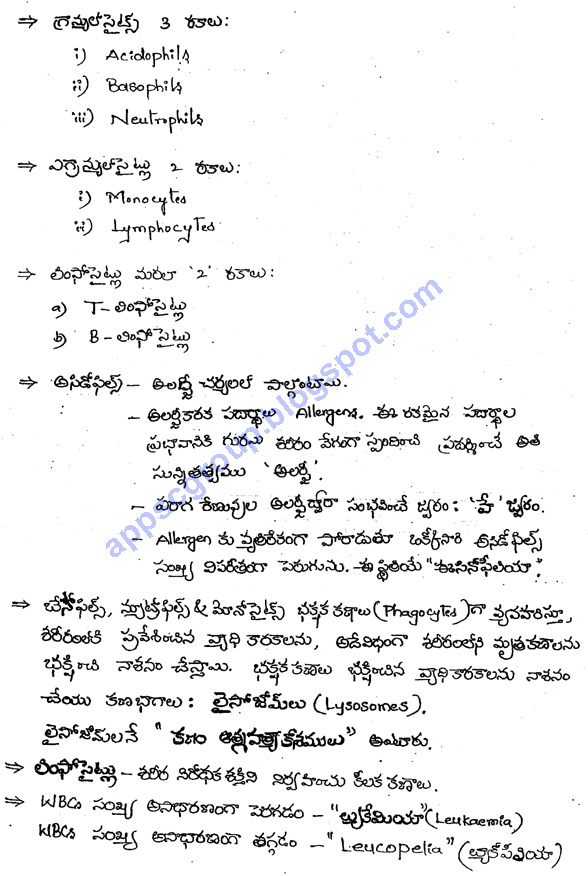 ⇒ గ్రాన్యులోసైట్స్ 3 రకాలు:
i) Acidophils
ii) Basophils
iii) Neutrophils
⇒ ఎగ్రాన్యులోసైట్లు 2 రకాలు:
i) Monocytes
ii) Lymphocytes
⇒ లింఫోసైట్లు మరలా '2' రకాలు:
a) T-లింఫోసైట్లు
b) B-లింఫోసైట్లు
⇒ అసిడోఫిల్స్ - అలర్జీ చర్యలలో పాల్గొంటాయి.
- అలర్జీకారక పదార్థాలు Allergens. ఈ రకమైన పదార్థాల
ప్రభావానికి గురయి శరీరం వేగంగా స్పందించి ప్రదర్శించే అతి
సున్నితత్వము 'అలర్జీ'.
- పరాగ రేణువుల అలర్జీద్వారా సంభవించే జ్వరం: 'హే' జ్వరం.
- Allergen కు వ్యతిరేకంగా పోరాడుతూ ఒక్కోసారి అసిడోఫిల్స్
సంఖ్య విపరీతంగా పెరుగును. ఈ స్థితియే "ఈసినోఫీలియా".
⇒ బేసోఫిల్స్, న్యూట్రోఫిల్స్ & మోనోసైట్స్ భక్షక కణాలు (Phagocytes)గా వ్యవహరిస్తూ,
శరీరంలోకి ప్రవేశించిన వ్యాధి కారకాలను, అదేవిధంగా శరీరంలోని మృతకణాలను
భక్షించి నాశనం చేస్తాయి. భక్షక కణాలు భక్షించిన వ్యాధికారకాలను నాశనం
చేయు కణభాగాలు: లైసోజోమ్‌లు (Lysosomes).
లైసోజోమ్‌లనే "కణం ఆత్మహత్యాకోశములు" అంటారు.
⇒ లింఫోసైట్లు - శరీర నిరోధకశక్తిని నిర్వహించు కీలక కణాలు.
⇒ WBCs సంఖ్య అసాధారణంగా పెరగడం - "ల్యుకేమియా" (Leukaemia)
WBCs సంఖ్య అసాధారణంగా తగ్గడం - "Leucopelia" (ల్యూకోపీలియా)
appscgroup.blogspot.com